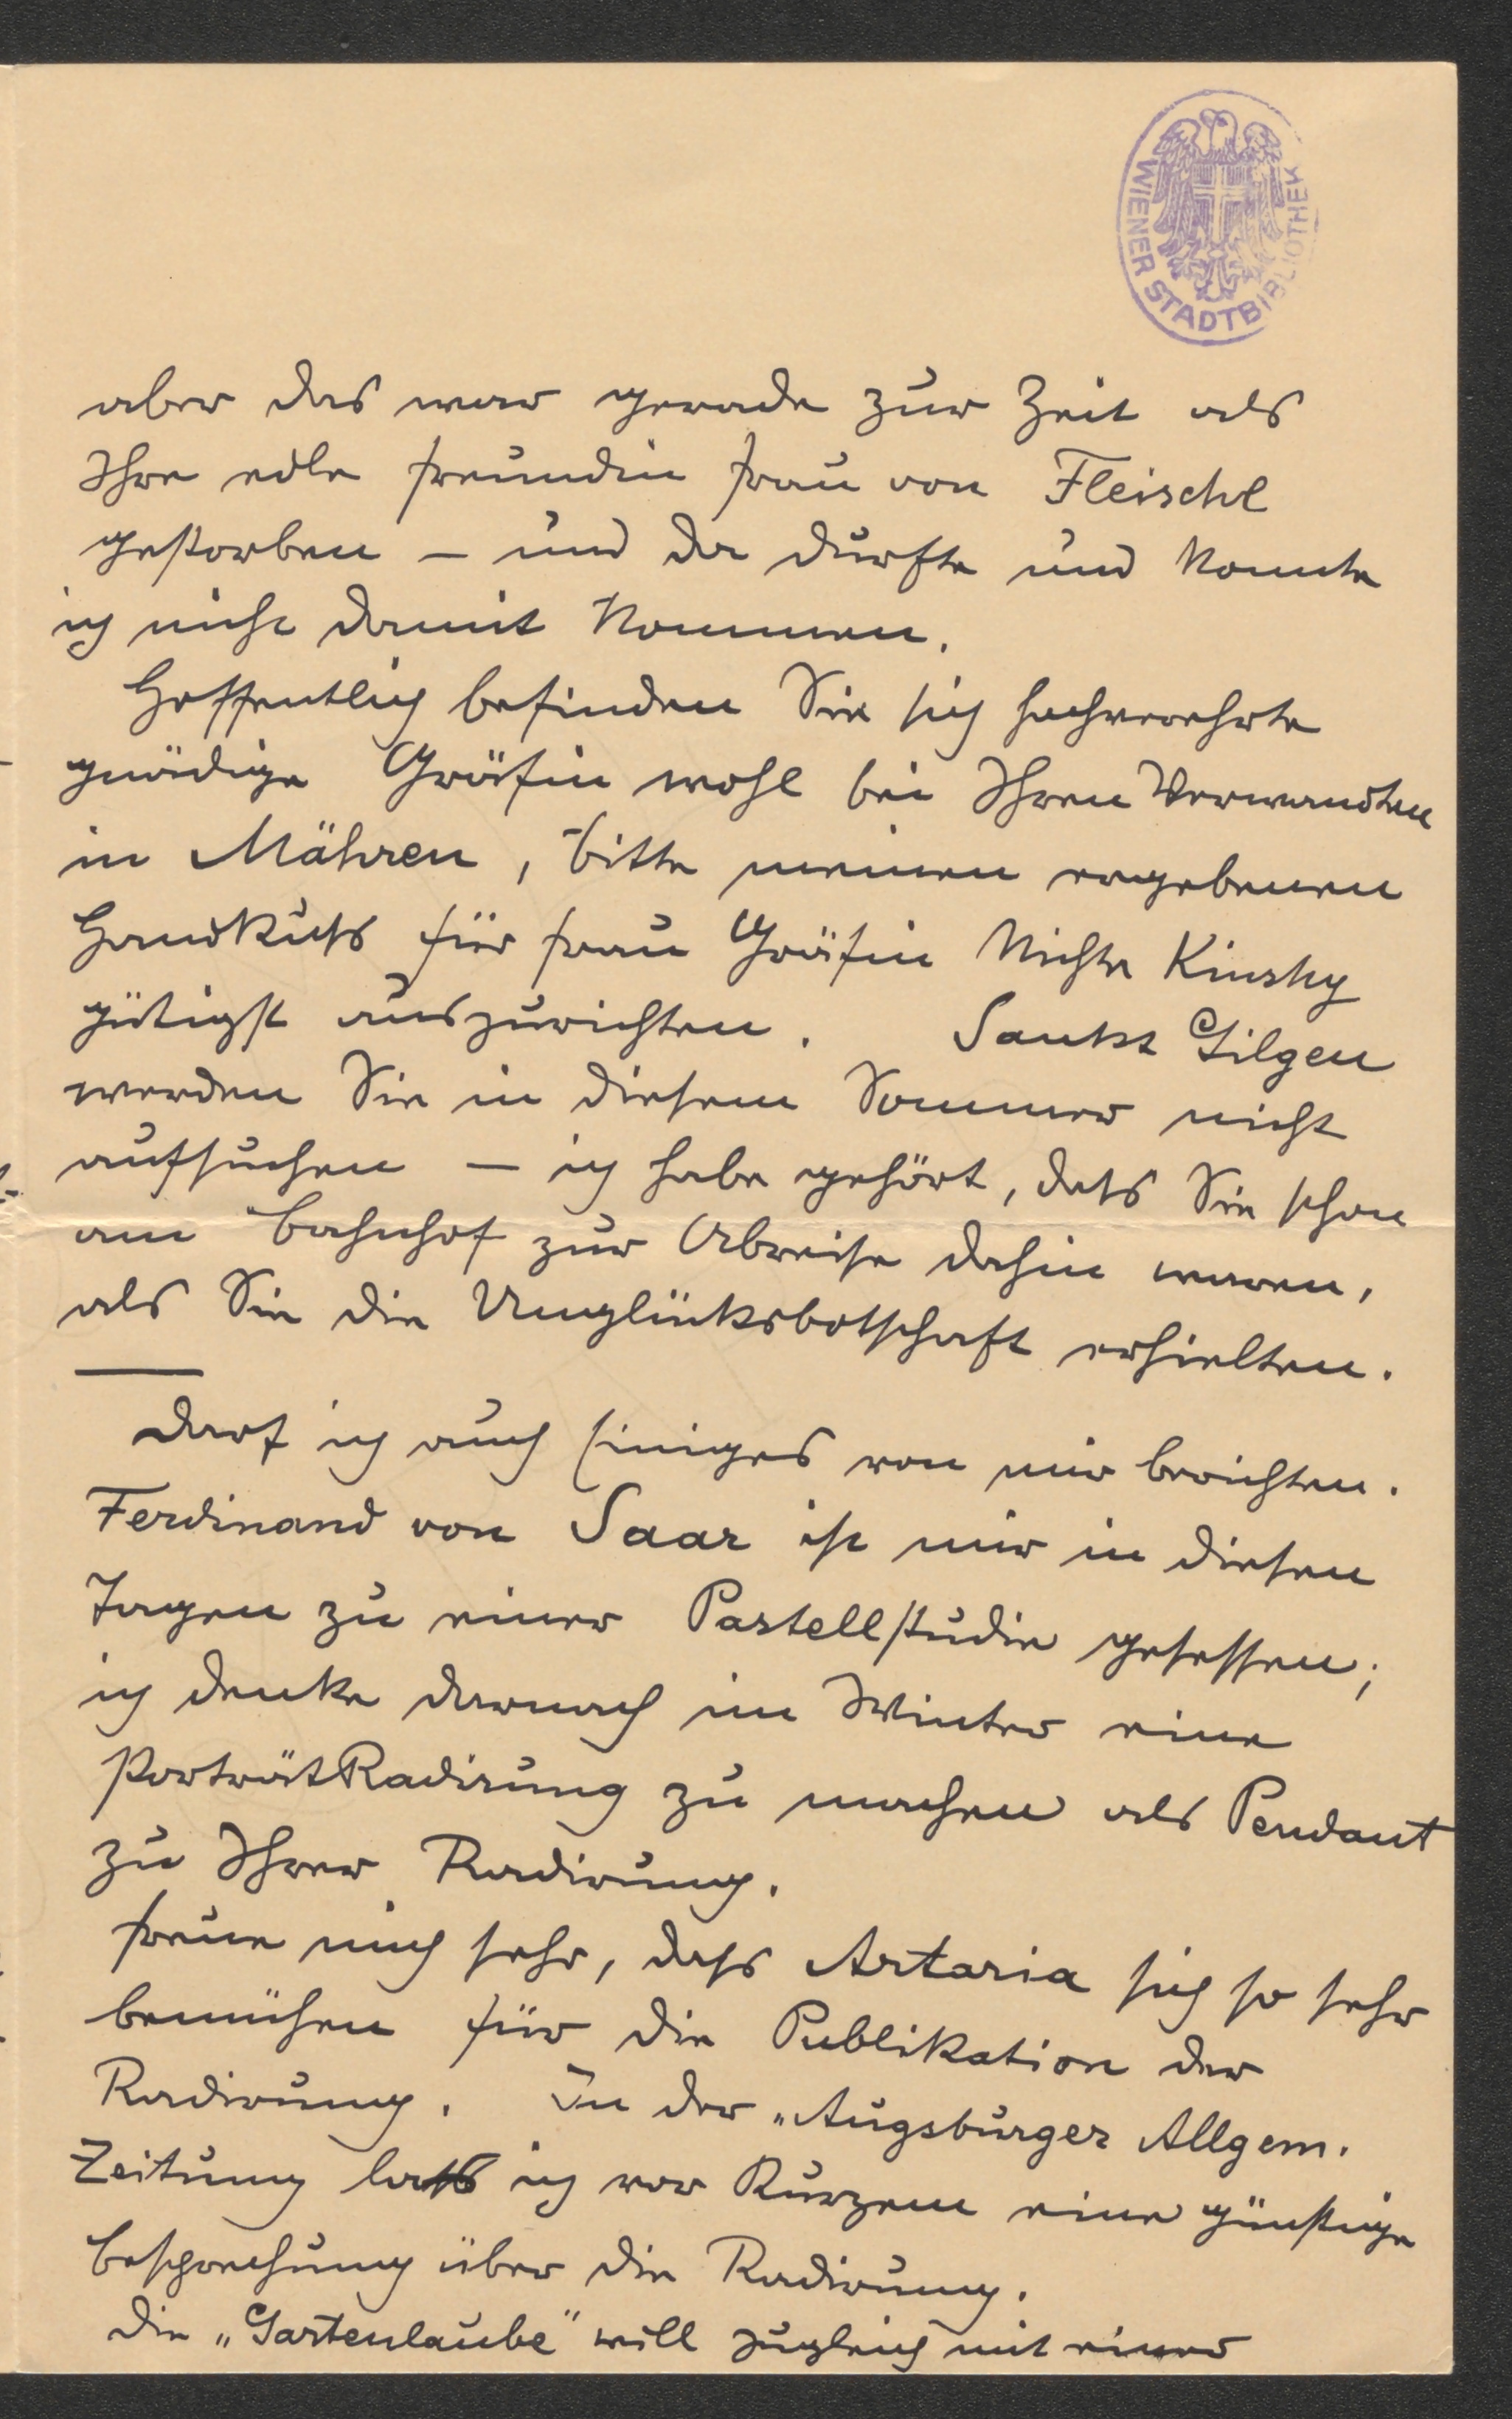 WIENER STADTBIBLIOTHEK
aber das war gerade zur Zeit als
Ihre edle Freundin Frau von Fleischl
gestorben – und da durfte und konnte
ich nicht damit kommen.
Hoffentlich befinden Sie sich hochverehrte
gnädige Gräfin wohl bei Ihren Verwandten
in Mähren, bitte meinen ergebenen
Handkuss für Frau Gräfin Nichte Kinsky
gütigst auszurichten. Sankt Gilgen
werden Sie in diesem Sommer nicht
aufsuchen – ich habe gehört, dass Sie schon
am Bahnhof zur Abreise dahin waren,
als Sie die Unglücksbotschaft erhielten.
Darf ich auch Einiges von mir berichten.
Ferdinand von Saar ist mir in diesen
Tagen zu einer Pastellstudie gesessen;
ich denke darnach im Winter eine
PorträtRadirung zu machen als Pendant
zu Ihrer Radirung.
Freue mich sehr, dass Artaria sich so sehr
bemühen für die Publikation der
Radirung. In der „Augsburger Allgem.
Zeitung las ich vor Kurzem eine günstige
Besprechung über die Radirung.
Die „Gartenlaube" will zugleich mit einer